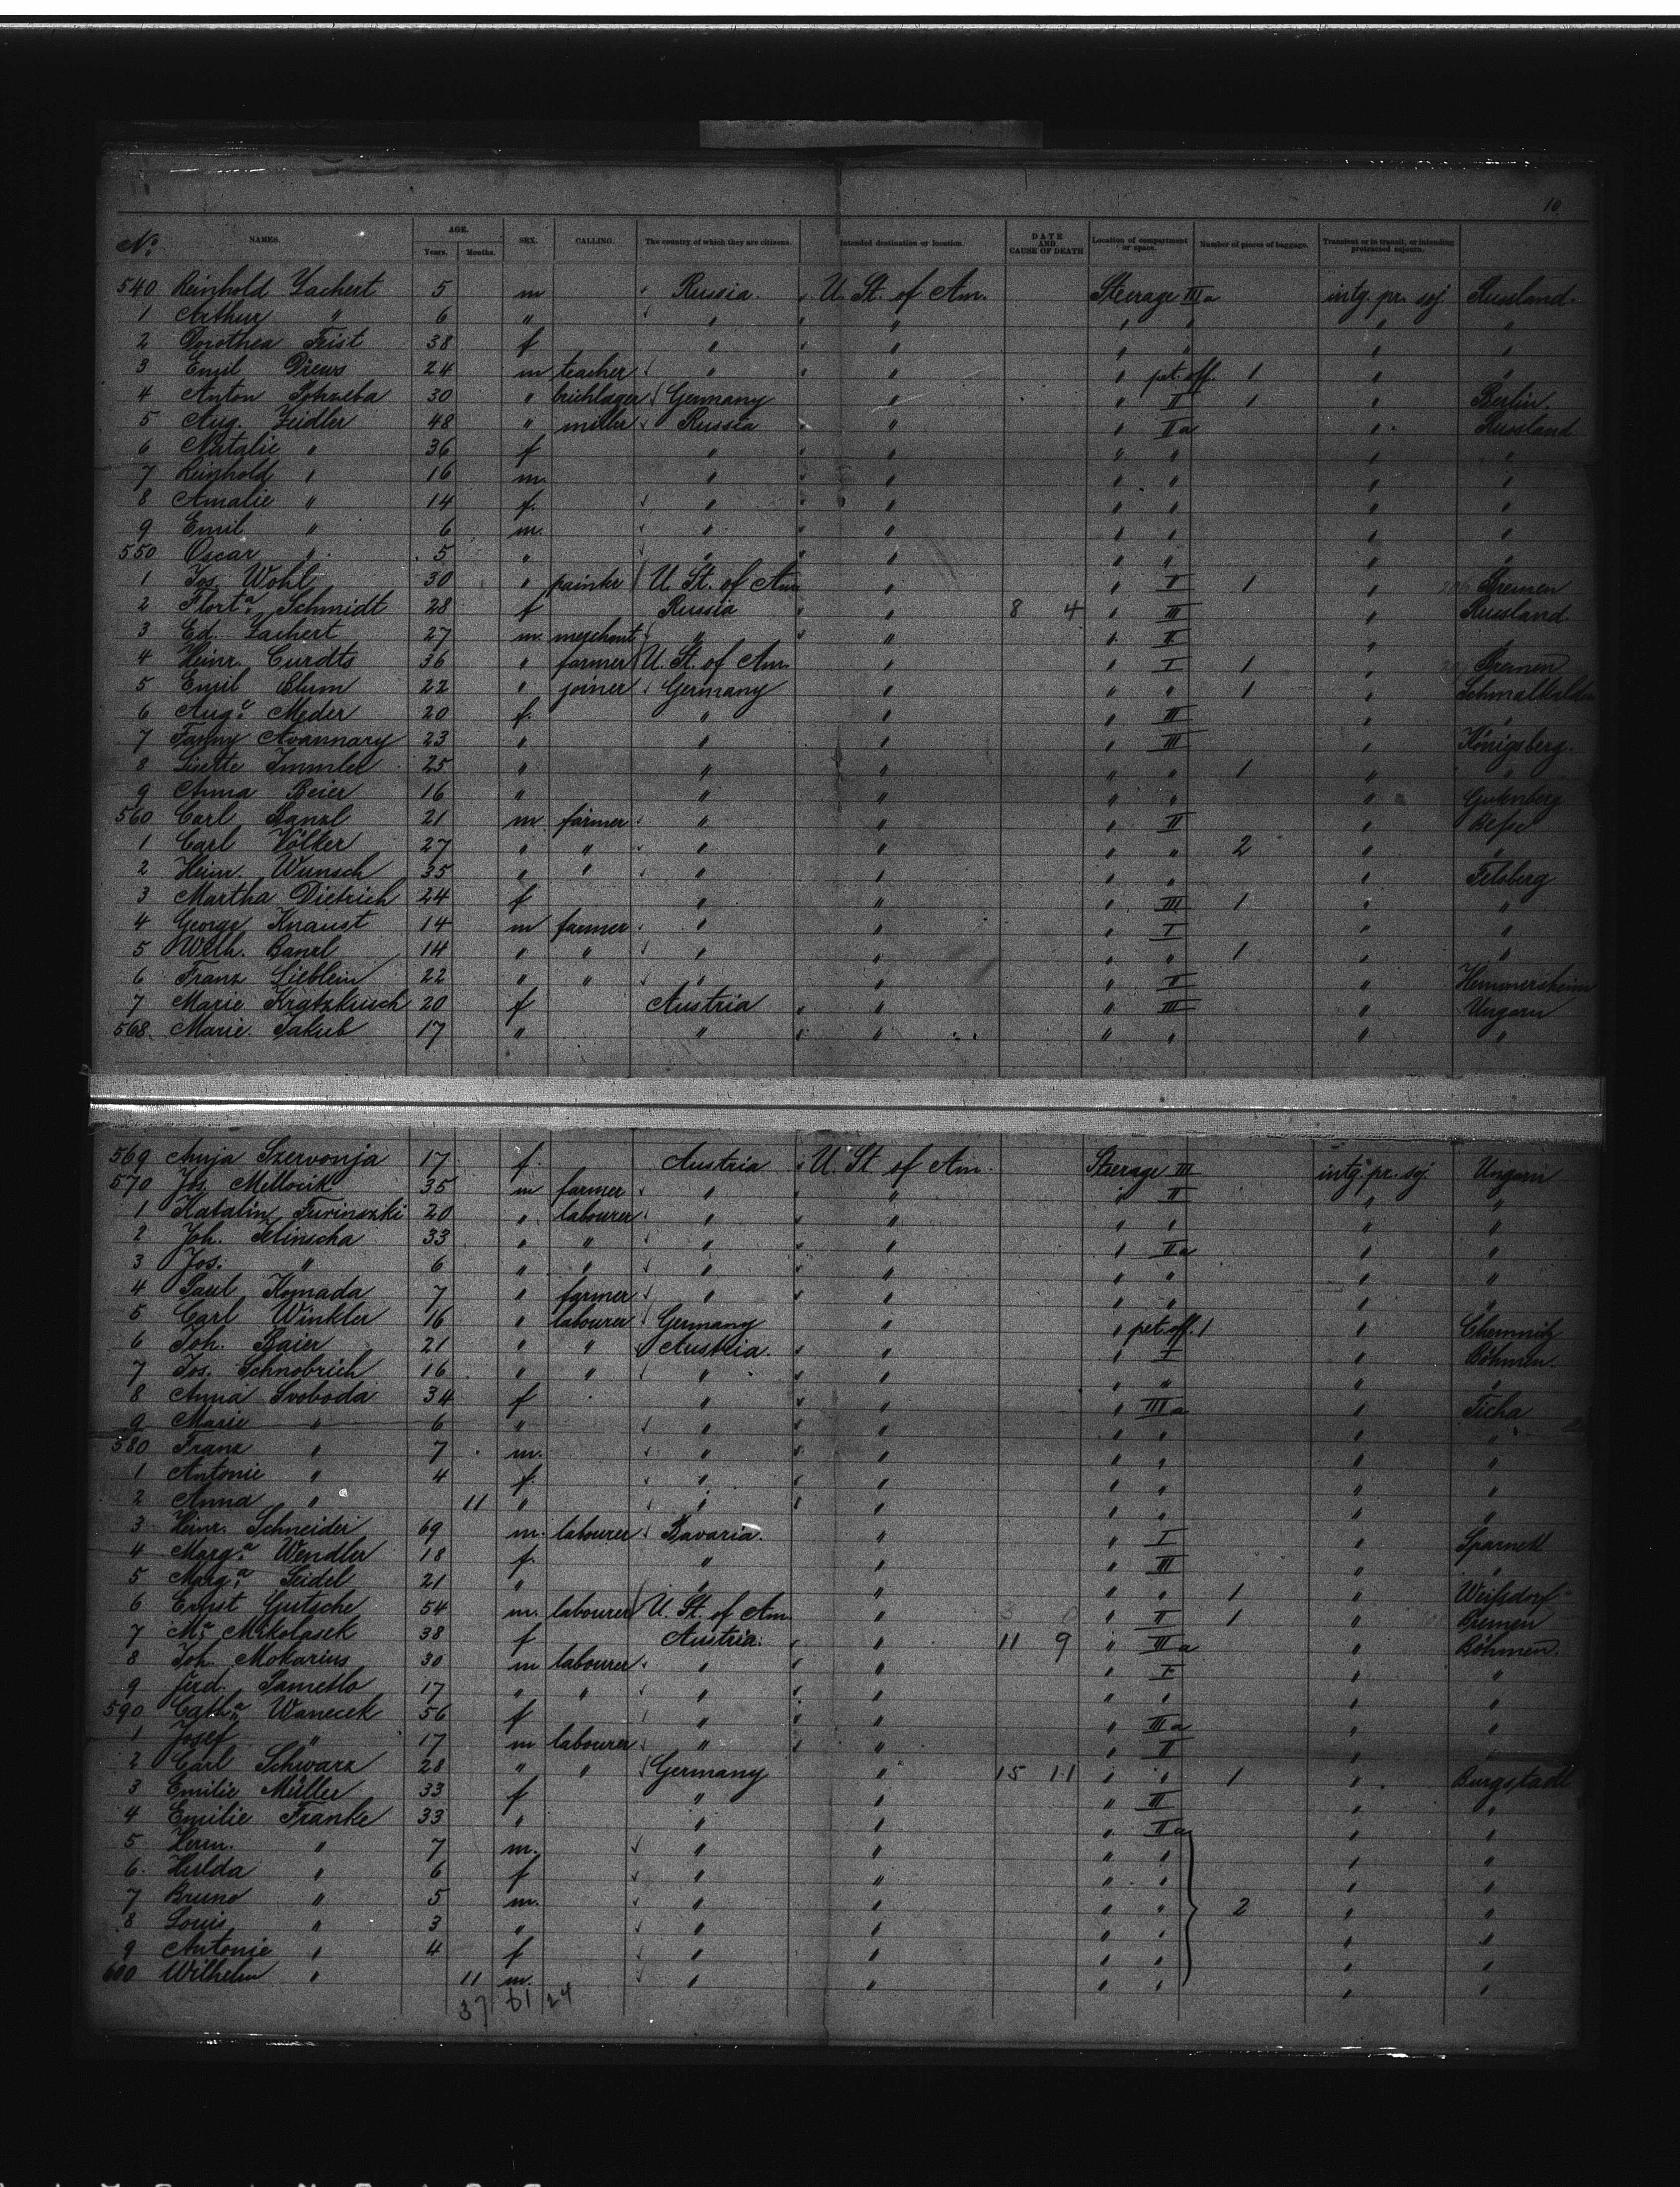 10
No. NAMES. AGE. Years. Months. SEX. CALLING. The country of which they are citizens. Intended destination or location. DATE AND CAUSE OF DEATH Location of compartment or space. Number of pieces of baggage. Transient or in transit, or intending protracted sojourn.
540 Reinhold Lachert 5 m Russia. U. St. of Am. Steerage IIIa intg. pr. soj. Russland.
1 Arthur " 6 " " " " " " "
2 Dorothea Feist 38 f " " " " " "
3 Emil Drews 24 m teacher " " " pet. off. 1 " "
4 Anton 30 " Germany " " II 1 " Berlin.
5 Aug. Zeidler 48 " miller Russia " " IIa " Russland
6 Natalie " 36 f " " " " " "
7 Reinhold " 16 m. " " " " " "
8 Amalie " 14 f. " " " " " "
9 Emil " 6 m. " " " " " "
550 Oscar " 5 " " " " " " "
1 Jos. Wohl 30 " painter U. St. of Am " " II 1 " Bremen
2 Schmidt 28 f Russia " 8 4 " III " Russland.
3 Ed. Lachert 27 m. merchant " " " II " "
4 Heinr. Curdts 36 " farmer U. St. of Am. " " I 1 " Bremen
5 Emil Blum 22 " joiner Germany " " " 1 " Schmalkalden
6 Auge. Meder 20 f. " " " III " "
7 Fanny 23 " " " " III " Königsberg.
8 Lisette Immler 25 " " " " " 1 " "
9 Anna Beier 16 " " " " " " Gutenberg
560 Carl Banzl 21 m farmer " " " II "
1 Carl Völker 27 " " " " " " 2 " "
2 Heinr. Wunsch 35 " " " " " " " Felsberg
3 Martha Dietrich 24 f " " " III 1 " "
4 George Knaust 14 m farmer " " " I " "
5 Wilh. Banzl 14 " " " " " " 1 " "
6 Franz Lieblein 22 " " " " " II " Hemmersheim
7 Marie 20 f Austria " " III " Ungarn
568. Marie Jakub 17 " " " " " " "
569 Anja Szervonja 17 f. Austria U. St. of Am. Steerage III intg. pr. soj. Ungarn
570 Jos. Mellocik 35 m farmer " " " II " "
1 Katalin Furinszki 20 " labourer " " " " " "
2 Joh. 33 " " " " " IIa " "
3 Jos. " 6 " " " " " " " "
4 Paul Komada 7 " farmer " " " " " "
5 Carl Winkler 16 " labourer Germany " " pet. off. 1 " Chemnitz
6 Joh. Baier 21 " " Austria. " " I " Böhmen.
7 Jos. Schnobrich 16 " " " " " " " "
8 Anna Svoboda 34 f " " " IIIa " Ticha
9 Marie " 6 " " " " " " "
580 Franz " 7 m. " " " " " "
1 Antonie " 4 f. " " " " " "
2 Anna " 11 " " " " " " "
3 Heinr. Schneider 69 m. labourer Bavaria. " " I "
4 Marga. Wendler 18 f. " " " III " "
5 Marga. Seidel 21 " " " " " 1 " Weißdorf
6 Ernst Gutsche 54 m. labourer U. St. of Am. " " II 1 " Bremen
7 Mikolasek 38 f Austria. " 11 9 " IIIa " Böhmen.
8 Joh. Mokarius 30 m labourer " " " I " "
9 Ferd. 17 " " " " " " " "
590 Catha. Wanecek 56 f " " " IIIa " "
1 Josef " 17 m labourer " " " II "
2 Carl Schwarz 28 " " Germany " 15 11 " " 1 " Burgstadt
3 Emilie Müller 33 f " " " III " "
4 Emilie Franke 33 " " " " IIa " "
5 Herm. " 7 m. " " " " " "
6 Hulda " 6 f " " " " " "
7 Bruno " 5 m. " " " " 2 " "
8 Louis " 3 " " " " " " "
9 Antonie " 4 f " " " " " "
600 Wilhelm " 11 m. " " " " " "
37 61 24